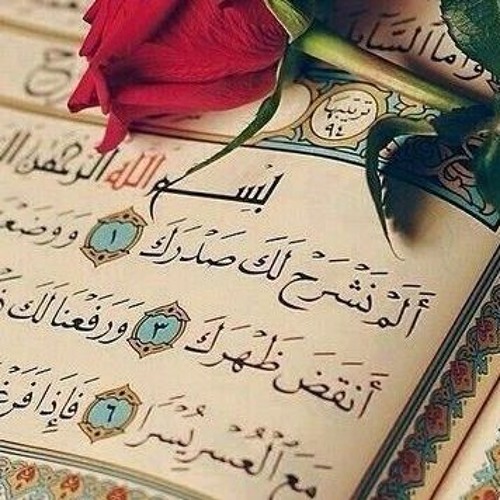 وأما السائل
ترتيبها
٩٤
بسم الله الرحمن
أَلَمْ نَشْرَحْ لَكَ صَدْرَكَ ١ وَوَضَعْ
أَنقَضَ ظَهْرَكَ ٣ وَرَفَعْنَا لَكَ ذ
مَعَ الْعُسْرِ يُسْرًا ٦ فَإِذَا فَرَغْ